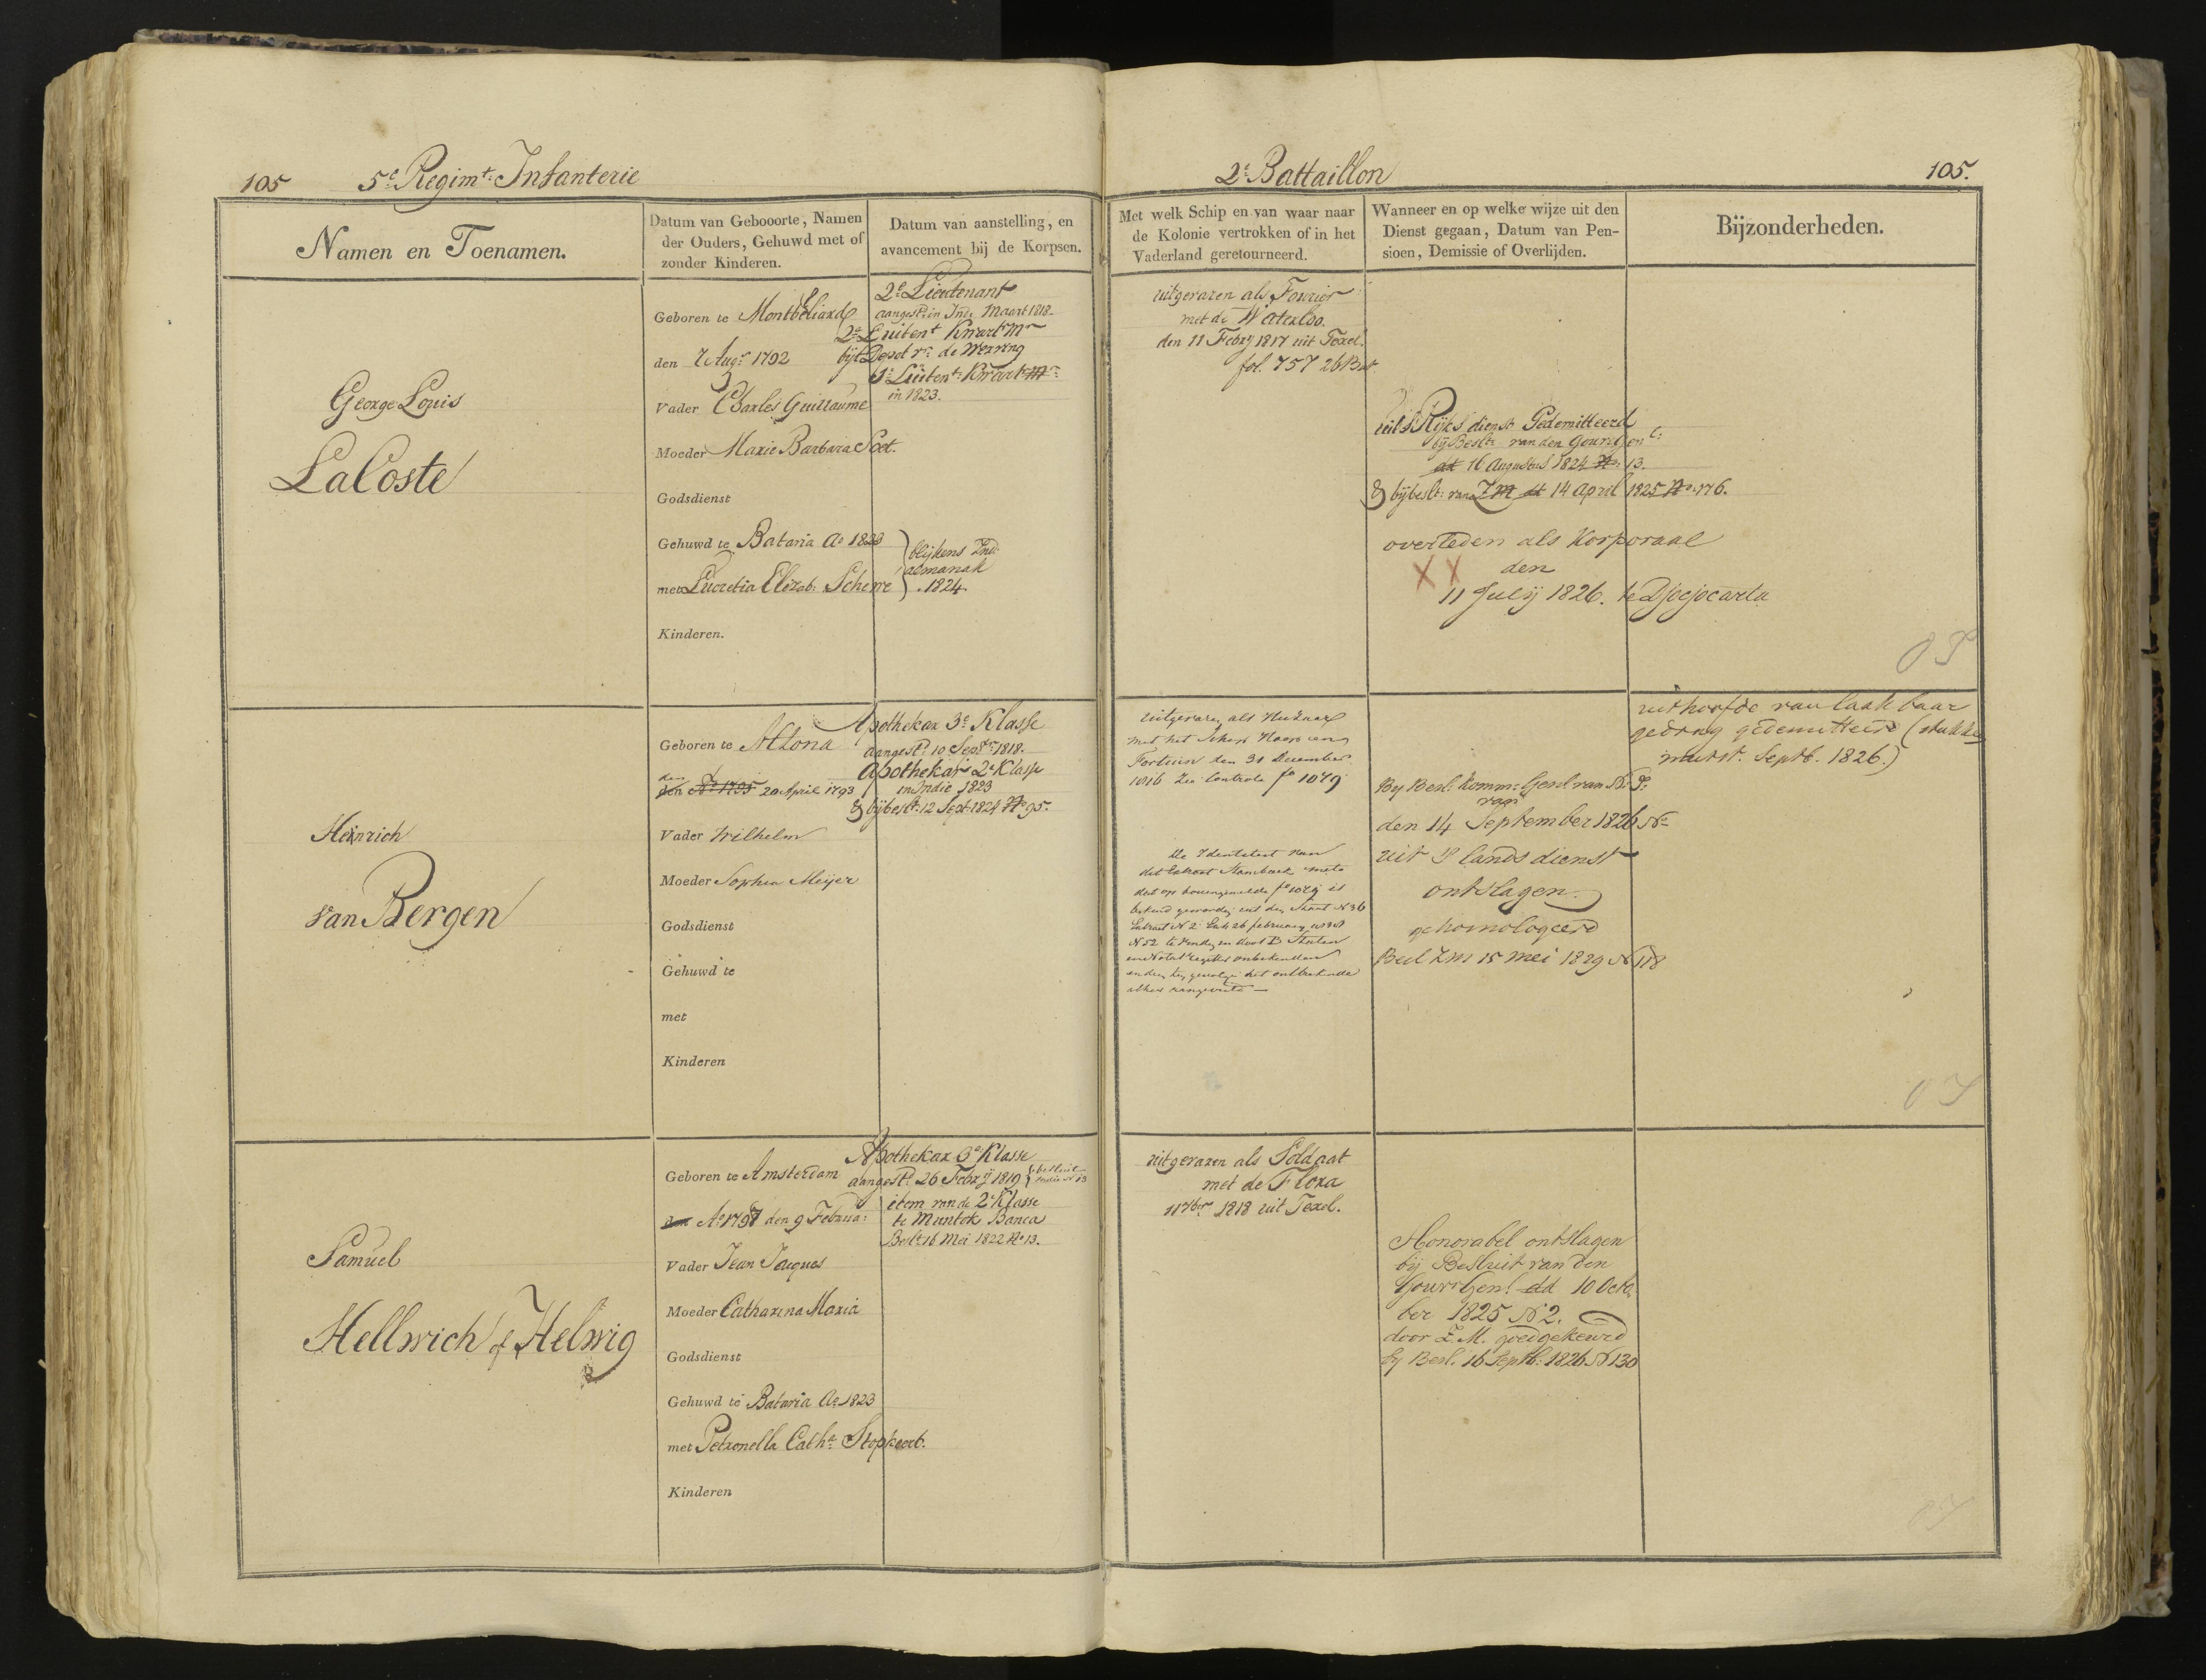 105 5e Regimt. Infanterie
2e Battaillon 105.
Namen en Toenamen.
Datum van Gebooorte, Namen
der Ouders, Gehuwd met of
zonder Kinderen.
Datum van aanstelling, en
avancement bij de Korpsen.
Met welk Schip en van waar naar
de Kolonie vertrokken of in het
Vaderland geretourneerd.
Wanneer en op welke wijze uit den
Dienst gegaan, Datum van Pen-
sioen, Demissie of Overlijden.
Bijzonderheden.
George Louis
LaCoste
Geboren te Montbéliard
den 7 Augs. 1792
Vader Charles Guillaume
Moeder Marie Barbara
Godsdienst
Gehuwd te Batavia Ao 1823
met Lucretia Elizab: Scherre
Kinderen.
2e Lieutenant
aangest. in Ind. Maart 1818.
2e Luitent Kwartmr
bijt Depot vn. de Werving
1e Luitent. Kwartmr.
in 1823.
blijkens Ind.
almanak
1824.
uitgevaren als Fourier
met de Waterloo.
den 11 Febrij 1817 uit Texel.
fol. 757 26 Bat.
uit 's Rijks dienst Gedemitteerd
bij Beslt. van den Gouvr Genl:
dd 16 Augustus 1824 No. 13.
& bij beslt: van ZM dd 14 April 1825 No. 176.
overleden als Korporaal
XX den
11 Julij 1826. te Djocjocarta
Heinrich
van Bergen
Geboren te Altona
den
den Ao 1795 20 April 1793
Vader Wilhelm
Moeder Sophia Meijer
Godsdienst
Gehuwd te
met
Kinderen
Apothekar 3e Klasse
aangest. 10 Septr. 1818.
Apothekar 2e Klasse
in Indie 1823
& bij beslt: 12 Sept 1824 No 95.
uitgevaren als Huzaar
met het Schip
Fortuin den 31 December
1816 Zie Controle fo 1079
De Identiteit van
dit Extract Stamboek met
dat op bovengemelde fo 1079 is
bekend geworden uit den Staat N 36
Extract N 2
N 52
By Besl. Komm: Genl van N: I:
van
den 14 September 1826 No
uit 's lands dienst
ontslagen.
gehomologeerd
Besl ZM 15 Mei 1829 No 118
uithoofde van laakbaar
gedrag gedemitteerd (stukken
mutst. Septb. 1826.)
Samuel
Hellwich of Helwig
Geboren te Amsterdam
den Ao 1797 den 9 Februa:
Vader Jean Jacques
Moeder Catharina Maria
Godsdienst
Gehuwd te Batavia Ao 1823
met Petronella Catha. Stopkerb.
Kinderen
Apothekar 3e Klasse
aangest. 26 Febrij 1819 besluit
Indie No 13
item van de 2e Klasse
te Muntok Banca
Beslt. 16 Mei 1822 No. 13.
uitgevaren als Soldaat
met de Flora
11 7ber 1818 uit Texel.
Honorabel ontslagen
bij Besluit van den
Gouvr Genl dd 10 Octo,
ber 1825 No 2.
door Z.M. goedgekeurd
by Besl. 16 Septb. 1826 No 130